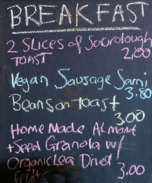 BREAKFAST
2 Slices of Sourdough
TOAST 2.00
Vegan Sausage Sarni
3.80
Beans on toast
3.00
Home Made Almont
+ Seed Granola w/
Organic Dried
3.00